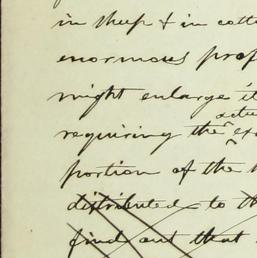 in sheep & in cotto
enormous prof
might enlarge it
requiring the ex
portion of the
distributed to th
find out that